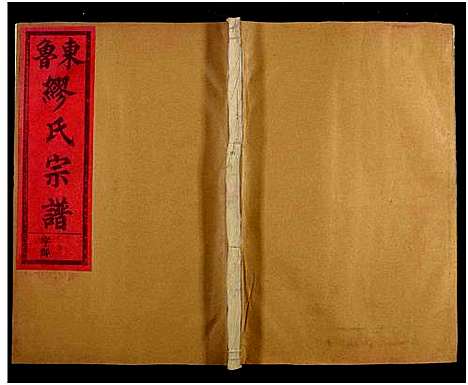 東魯
繆氏宗譜